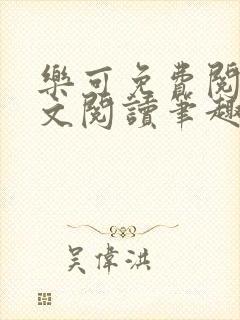 樂可免費閱
文閱讀筆趣
吳偉洪